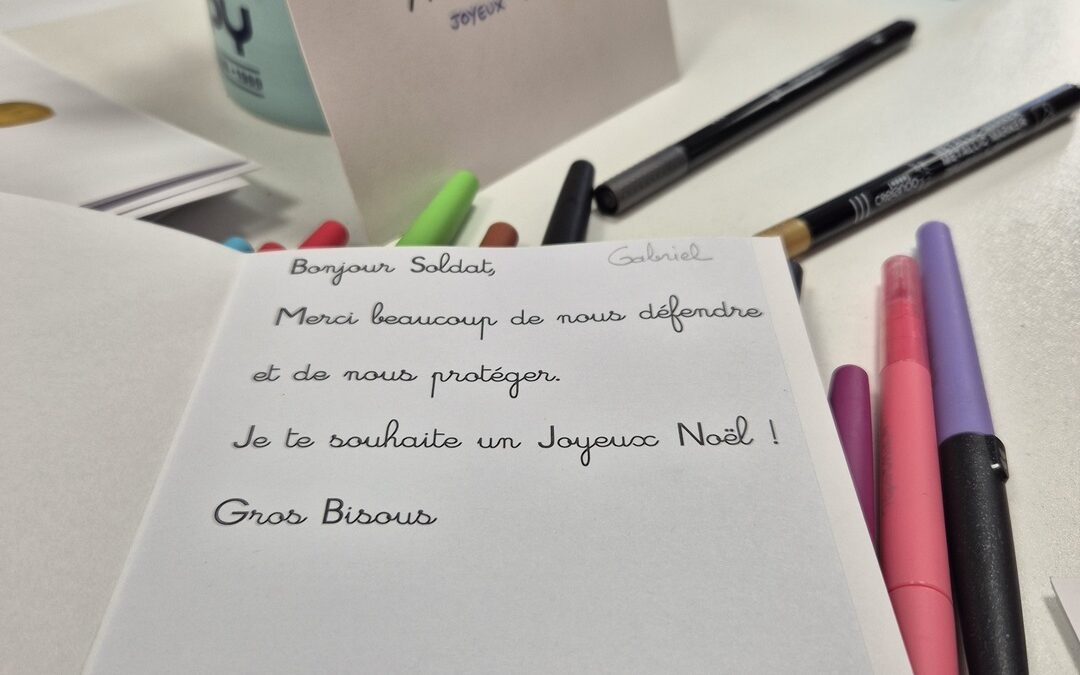 JOYEUX
Bonjour Soldat,
Gabriel
Merci beaucoup de nous défendre
et de nous protéger.
Je te souhaite un Joyeux Noël !
Gros Bisous
METALLIC MARKER